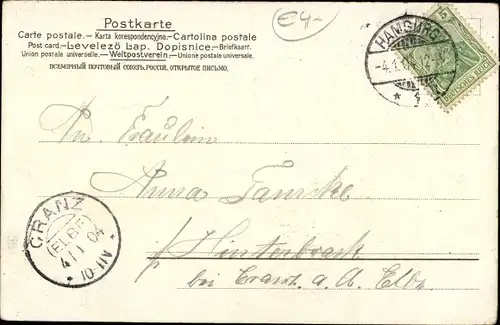 Postkarte
Carte postale. – Karta korespondencyjna. – Cartolina postale
Post card. – Levelező Lap. Dopisnice. – Briefkaart.
Union postale universelle. – Weltpostverein. – Unione postale universale.
ВСЕМІРНЫЙ ПОЧТОВЫЙ СОЮЗЪ. РОССІЯ. ОТКРЫТОЕ ПИСЬМО.
€4-
HAMBURG
5
Fräulein
Anna
Hinterbrack
bei Cranz a. d. Elbe
CRANZ
(ELBE)
4/1 04
10-11V